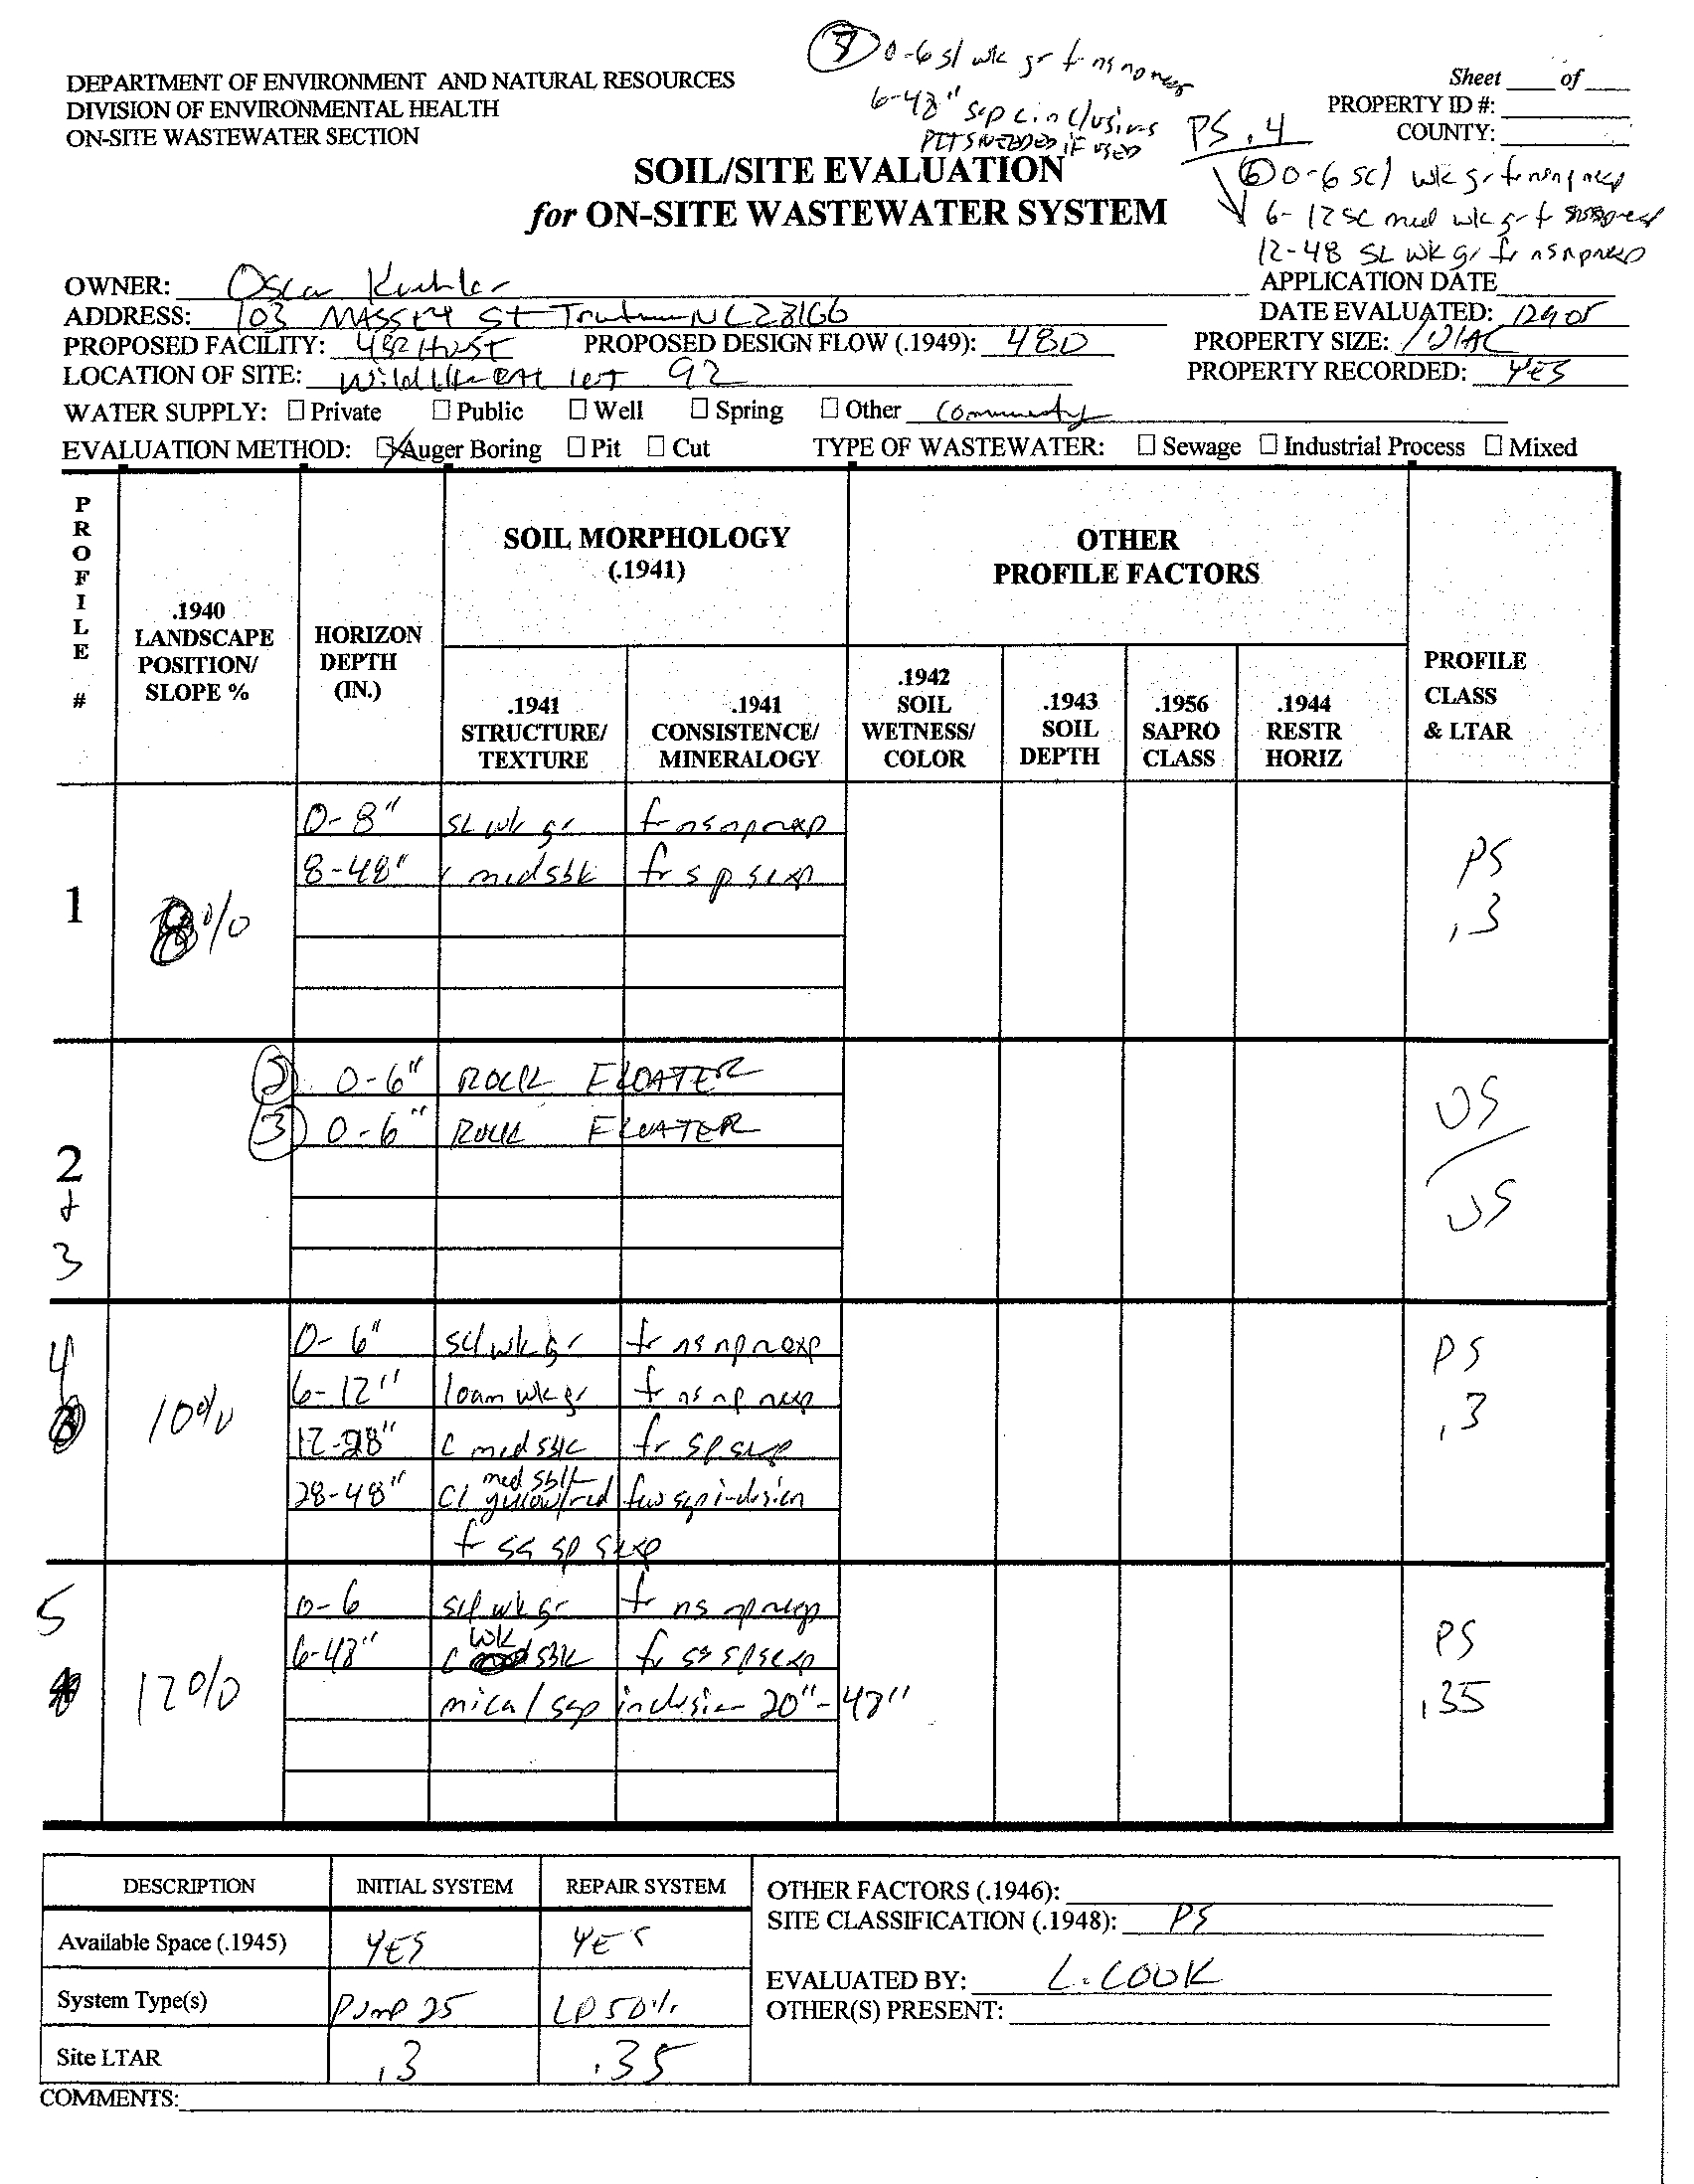 0-6 sl wk gr fr ns np nexp
6-48" sap c inclusions
PITS NEEDED IF USED
PS .4
DEPARTMENT OF ENVIRONMENT AND NATURAL RESOURCES
DIVISION OF ENVIRONMENTAL HEALTH
ON-SITE WASTEWATER SECTION
Sheet ____ of ____
PROPERTY ID #:
COUNTY:
SOIL/SITE EVALUATION
for ON-SITE WASTEWATER SYSTEM
6 0-6 scl wk gr fr ns np nexp
6-12 sc med wk gr fr
12-48 SL wk gr fr ns np nexp
OWNER: Oscar
APPLICATION DATE
ADDRESS: 103 MASSEY St Troutman NC 28166
DATE EVALUATED:
PROPOSED FACILITY:
PROPOSED DESIGN FLOW (.1949): 480
PROPERTY SIZE:
LOCATION OF SITE: Wildlife lot 92
PROPERTY RECORDED: YES
WATER SUPPLY: ☐ Private ☐ Public ☐ Well ☐ Spring ☐ Other Community
EVALUATION METHOD: ☒ Auger Boring ☐ Pit ☐ Cut TYPE OF WASTEWATER: ☐ Sewage ☐ Industrial Process ☐ Mixed
PROFILE #
.1940 LANDSCAPE POSITION/ SLOPE %
HORIZON DEPTH (IN.)
SOIL MORPHOLOGY (.1941)
.1941 STRUCTURE/ TEXTURE
.1941 CONSISTENCE/ MINERALOGY
OTHER PROFILE FACTORS
.1942 SOIL WETNESS/ COLOR
.1943 SOIL DEPTH
.1956 SAPRO CLASS
.1944 RESTR HORIZ
PROFILE CLASS & LTAR
1 8%
0-8" SL wk gr fr ns np nexp
8-48" c med sbk fr s p sexp
PS .3
2 + 3
2 0-6" ROCK FLOATER
3 0-6" ROCK FLOATER
US / US
4 10%
0-6" scl wk gr fr ns np nexp
6-12" loam wk gr fr ns np nexp
12-28" C med sbk fr s p sexp
28-48" Cl med sbk yellow/red few sap inclusion
fr ss sp sexp
PS .3
5 12%
0-6 scl wk gr fr ns np nexp
6-48" C wk sbk fr ss sp sexp
mica/sap inclusion 20"-48"
PS .35
DESCRIPTION INITIAL SYSTEM REPAIR SYSTEM
Available Space (.1945) YES YES
System Type(s) PUMP 25 LP 50%
Site LTAR .3 .35
OTHER FACTORS (.1946):
SITE CLASSIFICATION (.1948): PS
EVALUATED BY: L. COOK
OTHER(S) PRESENT:
COMMENTS: